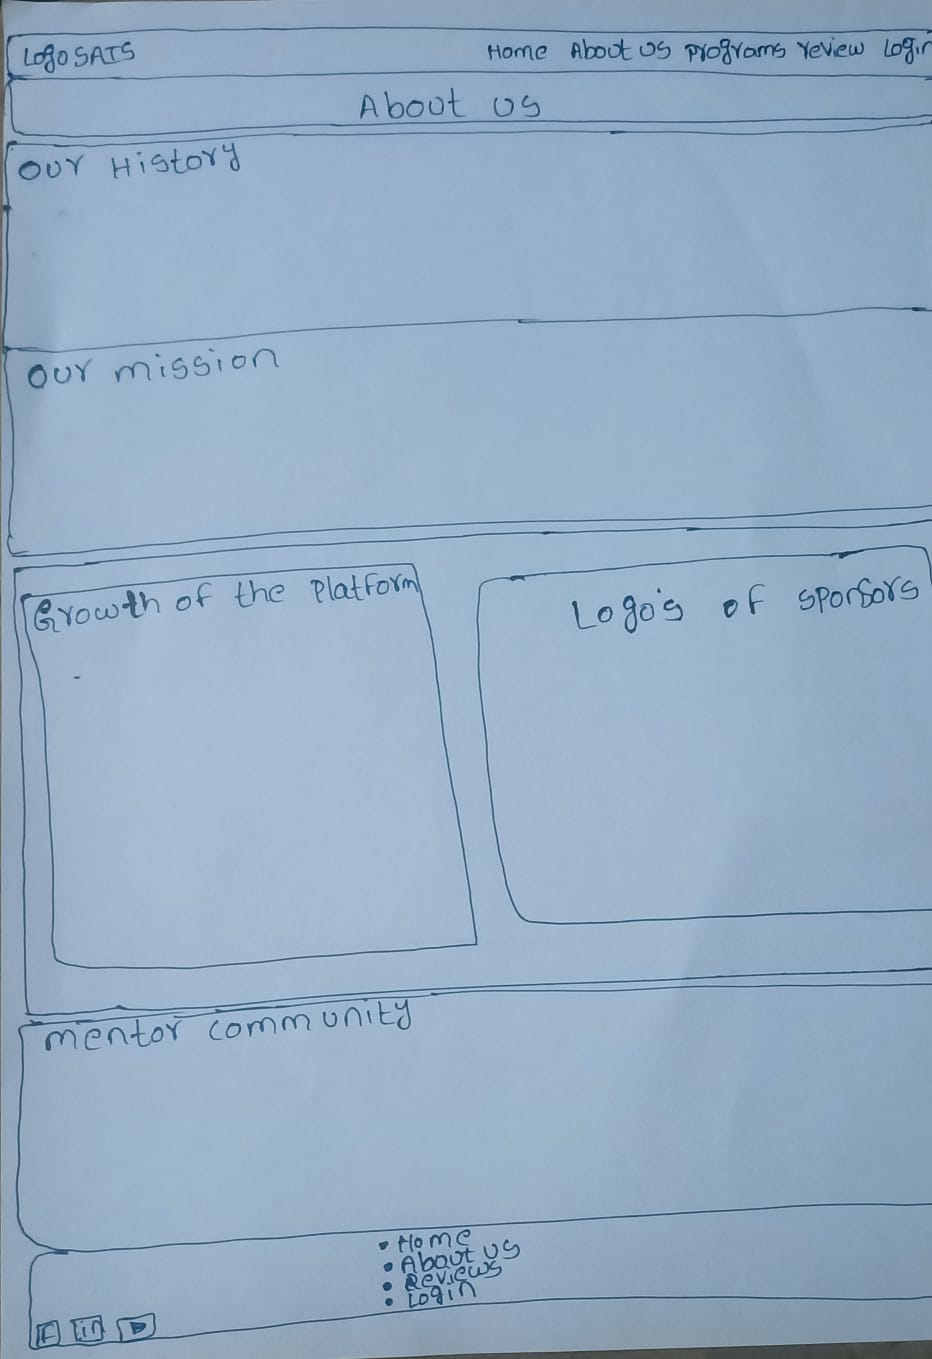 Logo SATS Home About us programs review Login
About us
our History
our mission
Growth of the Platform
Logo's of sponsors
mentor community
• Home
• About us
• Reviews
• Login
F in